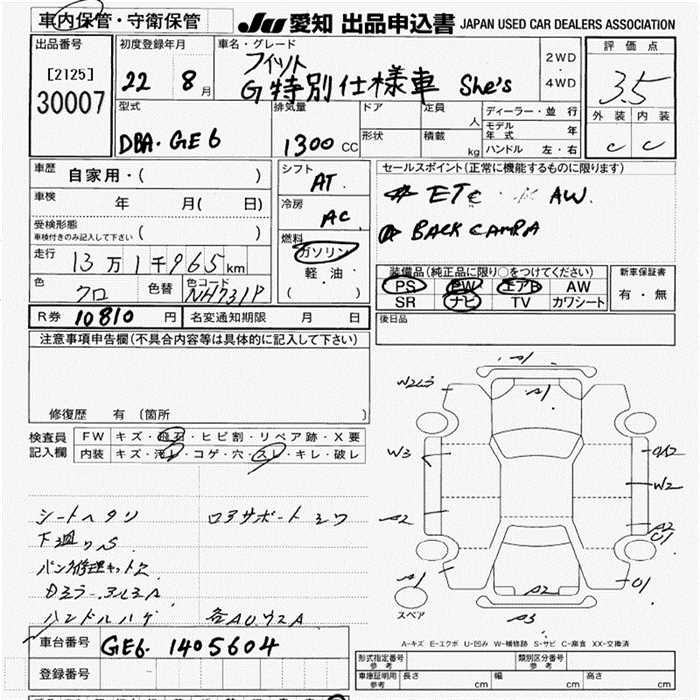 車内保管・守衛保管
JU 愛知 出品申込書 JAPAN USED CAR DEALERS ASSOCIATION
出品番号
[2125]
30007
初度登録年月
22 8月
車名・グレード
フィット
G特別仕様車 She's
2WD
・
4WD
評価点
3.5
外装 内装
C C
型式
DBA・GE6
排気量
1300 CC
ドア
定員
人
形状
積載
kg
ディーラー・並行
モデル年式 年
ハンドル 左・右
車歴 自家用・( )
車検 年 月( 日)
受検形態
車検付きのみ記入して下さい ( )
走行 13万1千965km
色 クロ
色替
色コード NH731P
シフト AT
冷房 AC
燃料
ガソリン
軽・油
( )
セールスポイント(正常に機能するものに限ります)
ETC AW
BACK
装備品(純正品に限り○をつけてください)
PS PW エアB AW
SR ナビ TV カワシート
新車保証書
有・無
R券 10810 円
名変通知期限 月 日
後日品
注意事項申告欄(不具合内容等は具体的に記入して下さい)
修復歴 有 (箇所 )
検査員
記入欄
FW キズ・飛石・ヒビ割・リペア跡・X要
内装 キズ・汚レ・コゲ・穴・スレ・キレ・破レ
シートヘタリ
下廻りS
パンク修理キットZ
ハンドルハゲ
各AUワ2A
A1
W2
A1
W3
W2
A2
A2
A1
A2
A3
スペア
A-キズ E-エクボ U-凹み W-補修跡 S-サビ C-腐食 XX-交換済
車台番号 GE6-1405604
登録番号
形式指定番号
参考
類別区分番号
参考
車庫証明用
参考
長さ cm
幅 cm
高さ cm